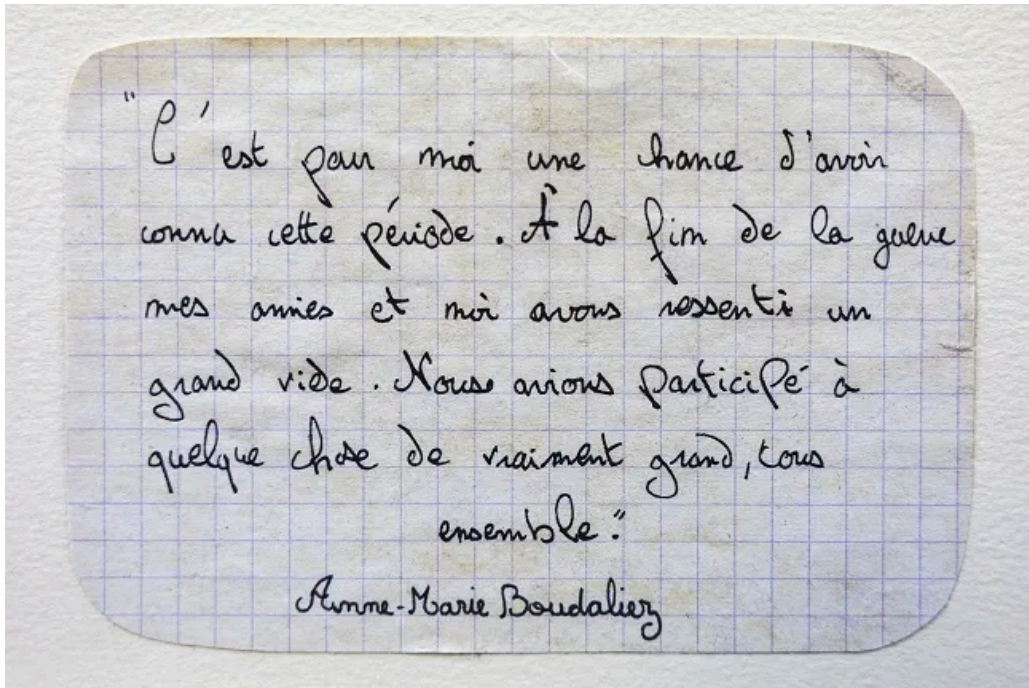 "C'est pour moi une chance d'avoir
connu cette période. À la fin de la guerre
mes amies et moi avons ressenti un
grand vide. Nous avions participé à
quelque chose de vraiment grand, tous
ensemble."
Anne-Marie Boudaliez